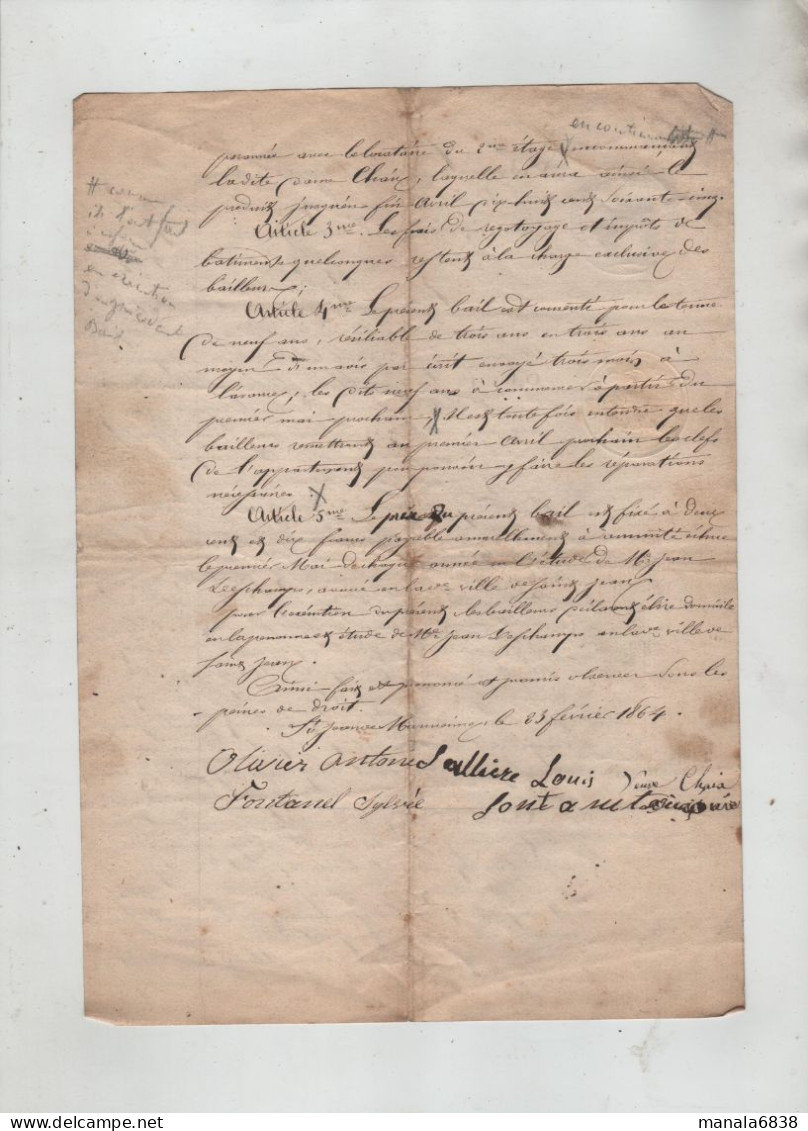 avec le locataire du 2me étage
la dite dame Chaix, laquelle en aura ainsi
jusqu'en fin Avril dix huit cent soixante cinq.
Article 3me. Les frais de regotoyage et impôts de
bâtiments quelconques restent à la charge exclusive des
bailleurs;
Article 4me Le présent bail est consenti pour le terme
de neuf ans, résiliable de trois ans en trois ans au
moyen d'un avis par écrit envoyé trois mois à
l'avance, les dits neuf ans à commencer à partir du
premier mai prochain, X Il est toutefois entendu que les
bailleurs remettront au premier Avril prochain les clefs
de l'appartement pour pouvoir y faire les réparations
nécessaires X
Article 5me Le prix du présent bail est fixé à deux
cent et dix francs payable annuellement à annuité échue
le premier Mai de chaque année en l'étude de Mr Jean
Deschamps, avoué en la ville de Saint Jean
pour l'exécution du présent les bailleurs déclarent élire domicile
en la personne et étude de Mr Jean Deschamps en la ville de
Saint Jean.
Ainsi fait et prononcé et promis observer sous les
peines de droit.
St Jean de Maurienne, le 23 février 1864.
Olivier Antoine Sallière Louis Veuve Chaix
Fontanel Sylvie
en exécution
Bail